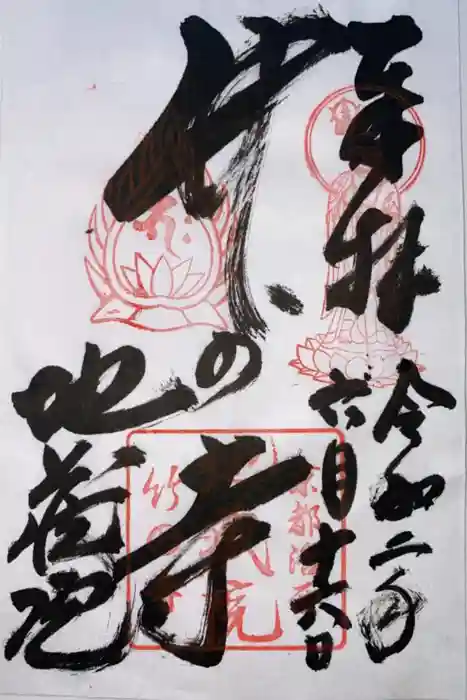 奉拝
令和二年
六月十六日
竹の寺
地蔵院
京都洛西
地蔵院
竹の寺